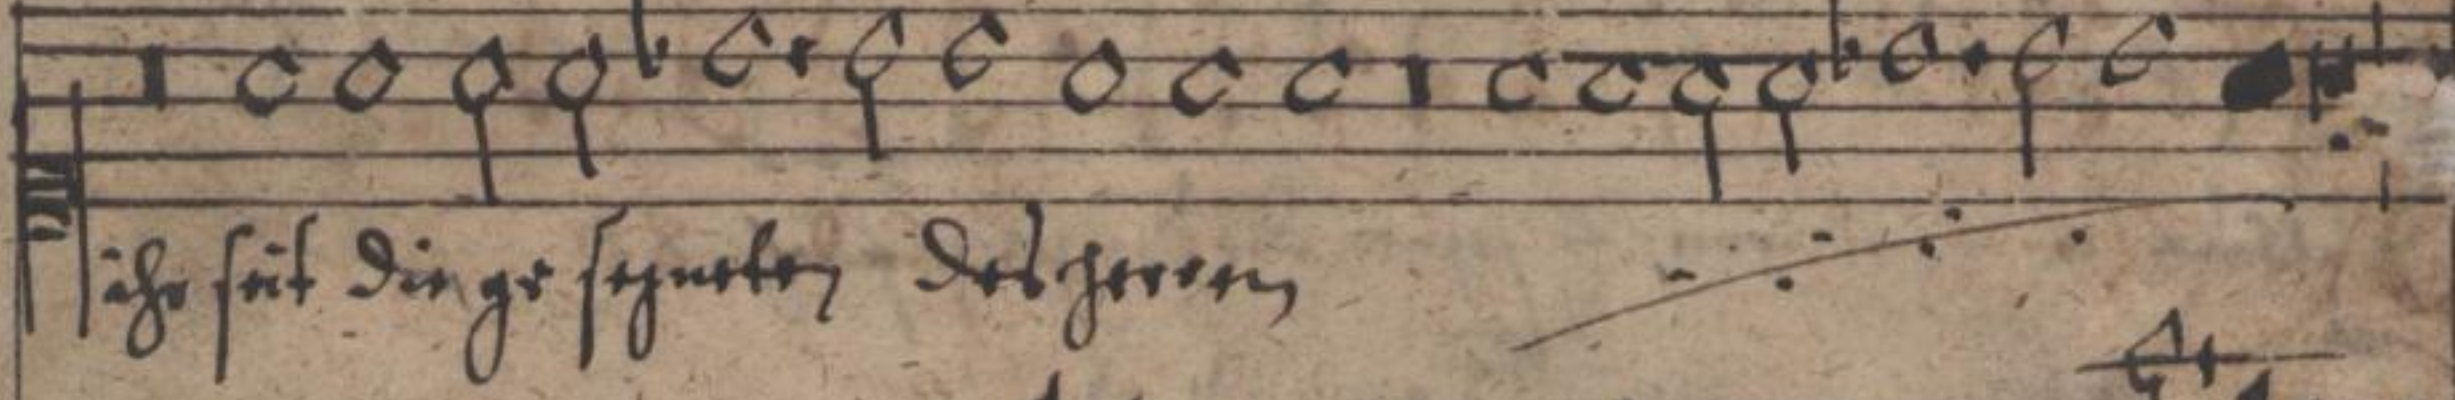 ihr seit die ge segneten des herren